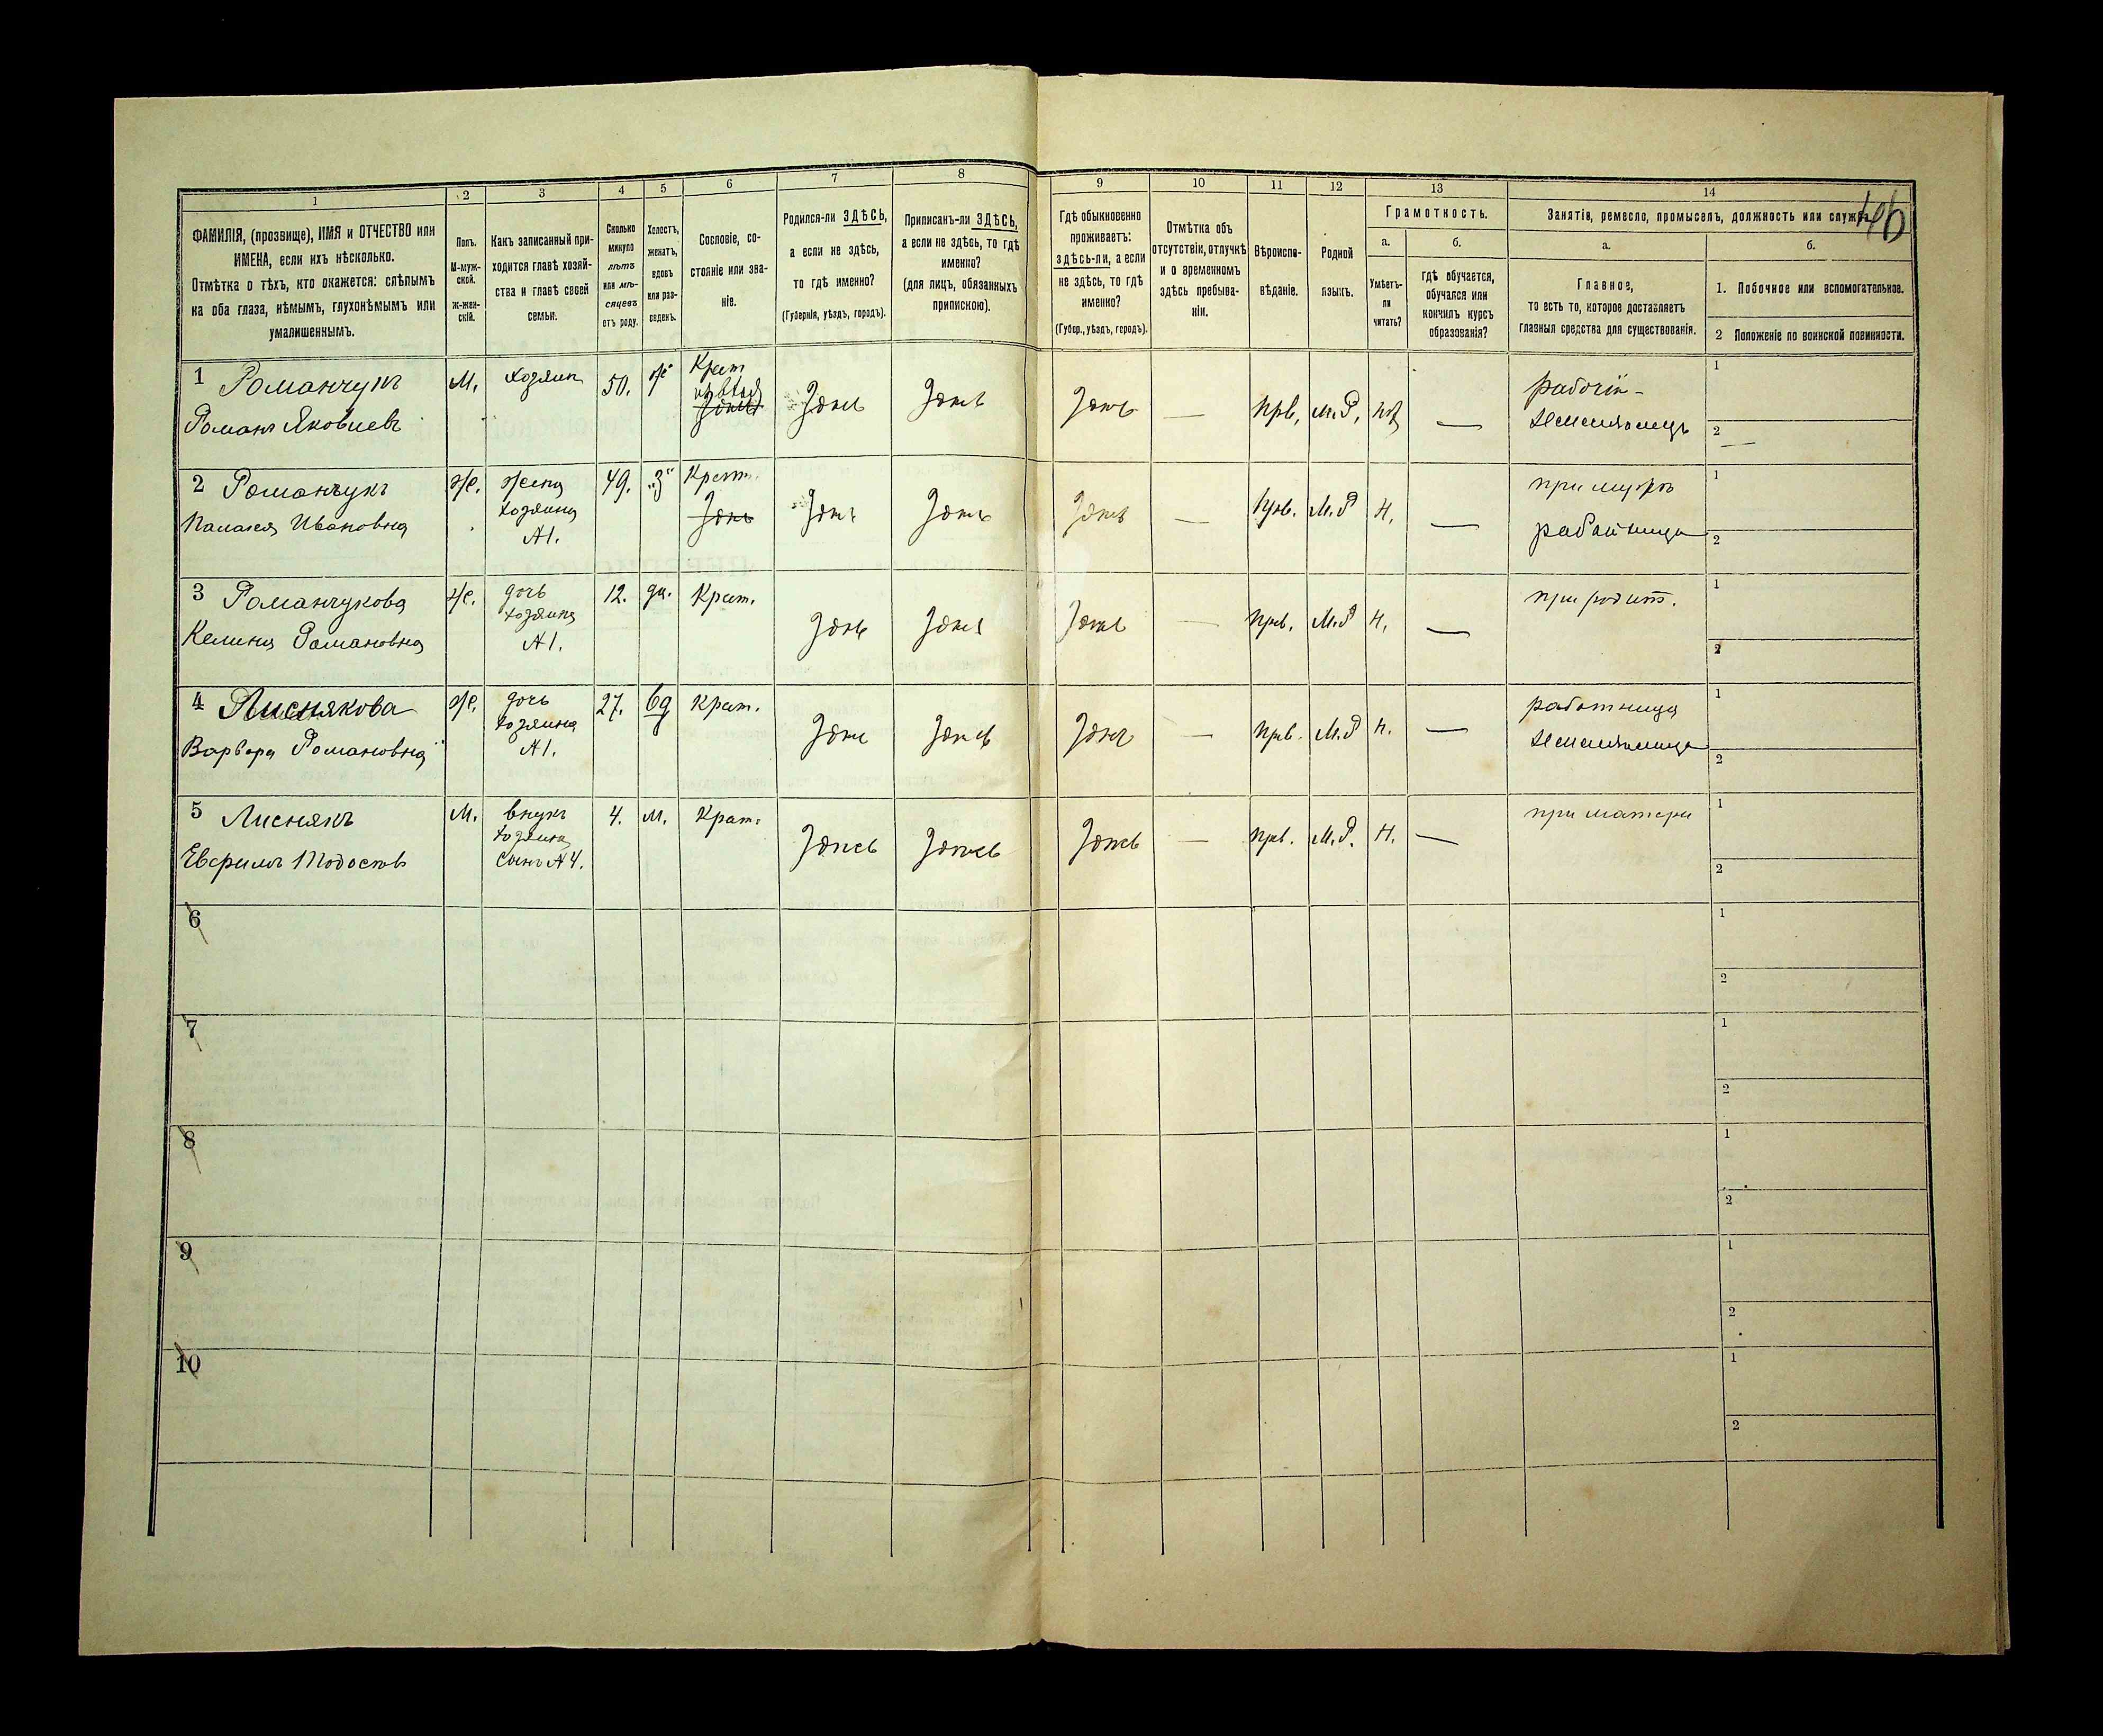 496
1
2
3
4
5
6
7
8
9
10
11
12
13
14
ФАМИЛІЯ, (прозвище), ИМЯ и ОТЧЕСТВО или
ИМЕНА, если ихъ нѣсколько.
Отмѣтка о тѣхъ, кто окажется: слѣпымъ
на оба глаза, нѣмымъ, глухонѣмымъ или
умалишеннымъ.
Полъ.
М-муж-
ской.
ж-жен-
скій.
Какъ записанный при-
ходится главѣ хозяй-
ства и главѣ своей
семьи.
Сколько
минуло
лѣтъ
или мѣ-
сяцевъ
отъ роду.
Холостъ,
женатъ,
вдовъ
или раз-
веденъ.
Сословіе, со-
стояніе или зва-
ніе.
Родился-ли ЗДѢСЬ,
а если не здѣсь,
то гдѣ именно?
(Губернія, уѣздъ, городъ).
Приписанъ-ли ЗДѢСЬ,
а если не здѣсь, то гдѣ
именно?
(для лицъ, обязанныхъ
припискою).
Гдѣ обыкновенно
проживаетъ:
здѣсь-ли, а если
не здѣсь, то гдѣ
именно?
(Губер., уѣздъ, городъ).
Отмѣтка объ
отсутствіи, отлучкѣ
и о временномъ
здѣсь пребыва-
ніи.
Вѣроиспо-
вѣданіе.
Родной
языкъ.
Грамотность.
а.
Умѣетъ-
ли
читать?
б.
гдѣ обучается,
обучался или
кончилъ курсъ
образованія?
Занятіе, ремесло, промыселъ, должность или служба.
а.
Главное,
то есть то, которое доставляетъ
главныя средства для существованія.
б.
1. Побочное или вспомогательное.
2 Положеніе по воинской повинности.
1 Романчукъ
Романъ Яковлевъ
М.
хозяин
50.
ж
Крест
Здесь
Здесь
Здесь
—
прв.
М.Р.
—
рабочій -
1
2 —
2 Романчукъ
Палажя Ивановна
Же.
жена
хозяина
№1.
49.
"З"
Крест.
Здесь
Здесь
Здесь
Здесь
—
прв.
М.Р
Н.
—
при мужѣ
работница
1
2
3 Романчукова
Келина Романовна
Же.
дочь
хозяина
№1.
12.
дв.
Крест.
Здесь
Здесь
Здесь
—
прв.
М.Р
Н.
—
при родит.
1
2
4 Лиснякова
Варвара Романовна
Же.
дочь
хозяина
№1.
27.
вд
Крест.
Здесь
Здесь
Здесь
—
прв.
М.Р
Н.
—
работница
1
2
5 Лиснякъ
М.
внукъ
хозяина
сынъ №4.
4.
М.
Крест.
Здесь
Здесь
Здесь
—
прв.
М.Р.
Н.
—
при матери
1
2
6
1
2
7
1
2
8
1
2
9
1
2
10
1
2